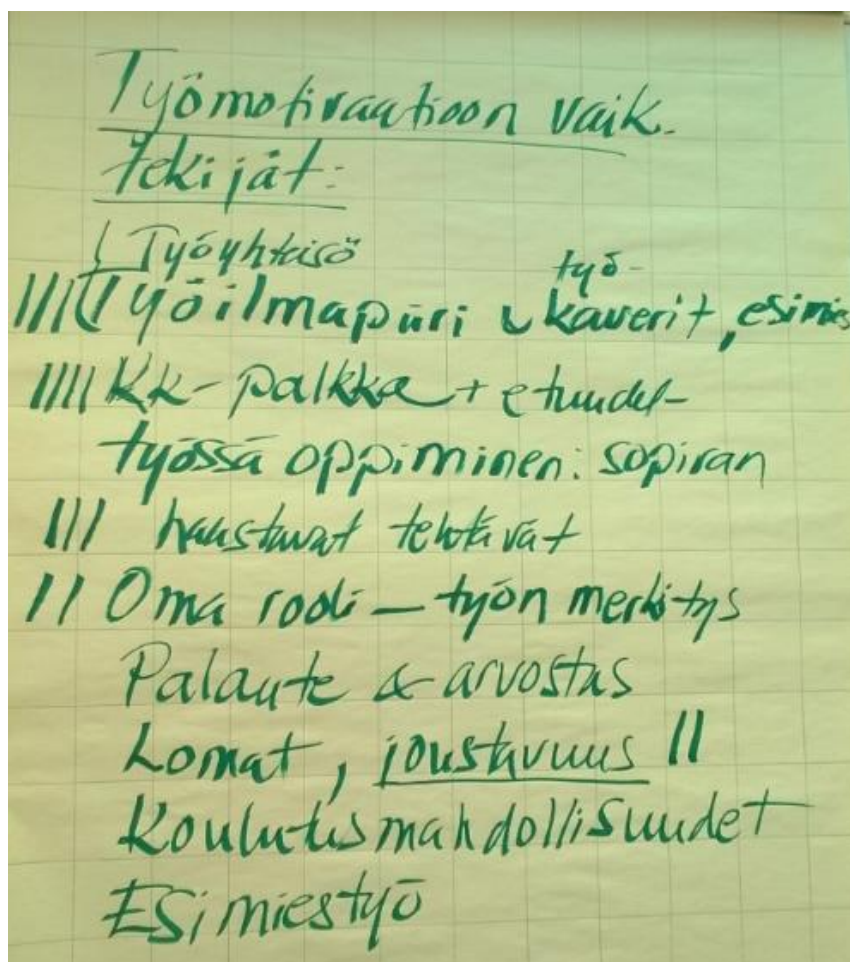 Työmotivaatioon vaik.
tekijät:
Työyhteisö
työ-
|||| Työilmapiiri kaverit, esimies
|||| Kk-palkka + etuudet-
työssä oppiminen: sopivan
||| haastavat tehtävät
|| Oma rooli – työn merkitys
Palaute & arvostus
Lomat, joustavuus ||
Koulutusmahdollisuudet
Esimiestyö